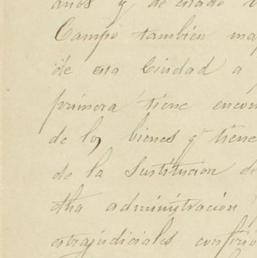 años y de estado
Campo tambien ma
de esta Ciudad a
primera tiene encom
de los bienes y tiene
de la Sustitucion de
dha administración
estrajudiciales confirió